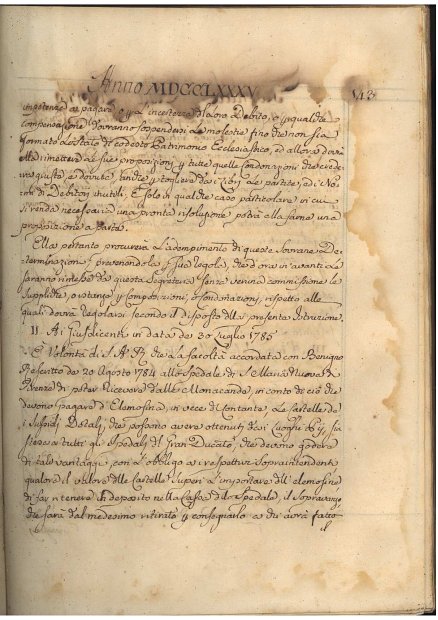 Anno MDCCLXXXV
143
impotenza di pagare, o p. l'incertezza di loro Debito, o p. qualche
compensazione dovranno sospendersi le molestie fino che non sia
formato lo stato di codesto Patrimonio Ecclesiastico, ed allora dovrà
Ella rimettere le sue proposizioni p. tutte quelle condonazioni che crede-
rà giuste, e dovute, tendenti a togliere da i Libri le partite, ed i No-
mi di Debitori inutili. E solo in qualche caso particolare in cui
si renda necessaria una pronta risoluzione potrà Ella farne una
proposizione a parte.
Ella pertanto procurerà l'adempimento di queste Sovrane De-
terminazioni prevenendola p. sua regola, che d'ora in avanti Le
saranno rimesse da questa Segreteria senza veruna commissione le
Suppliche, o istanze p. composizioni, o condonazioni, rispetto alle
quali dovrà regolarsi secondo il disposto della presente Istruzione.
11. Ai Giusdicenti in data de 30 Luglio 1785
È Volontà di S. A. R. che la facoltà accordata con Benigno
Rescritto de 20 Agosto 1784 allo Spedale di S. Maria Nuova di
Firenze di poter ricevere dalle Monacande, in conto di ciò che
devono pagare d'Elemosina, in vece di Contante, le Cartelle de
i Sussidj Dotali, che possono avere ottenuti da i Luoghi Pij, sia
estesa a tutti gli Spedali del Gran Ducato, che devono godere
di tale vantaggio, con l'obbligo a i respettivi Sopraintendenti
qualora il valore delle Cartelle superi l'importare dell'elemosina
di far ritenere in deposito nella Cassa dello Spedale, il Sopravanzo
che sarà dal medesimo ritirato p. consegnarlo a chi avrà fatto
il